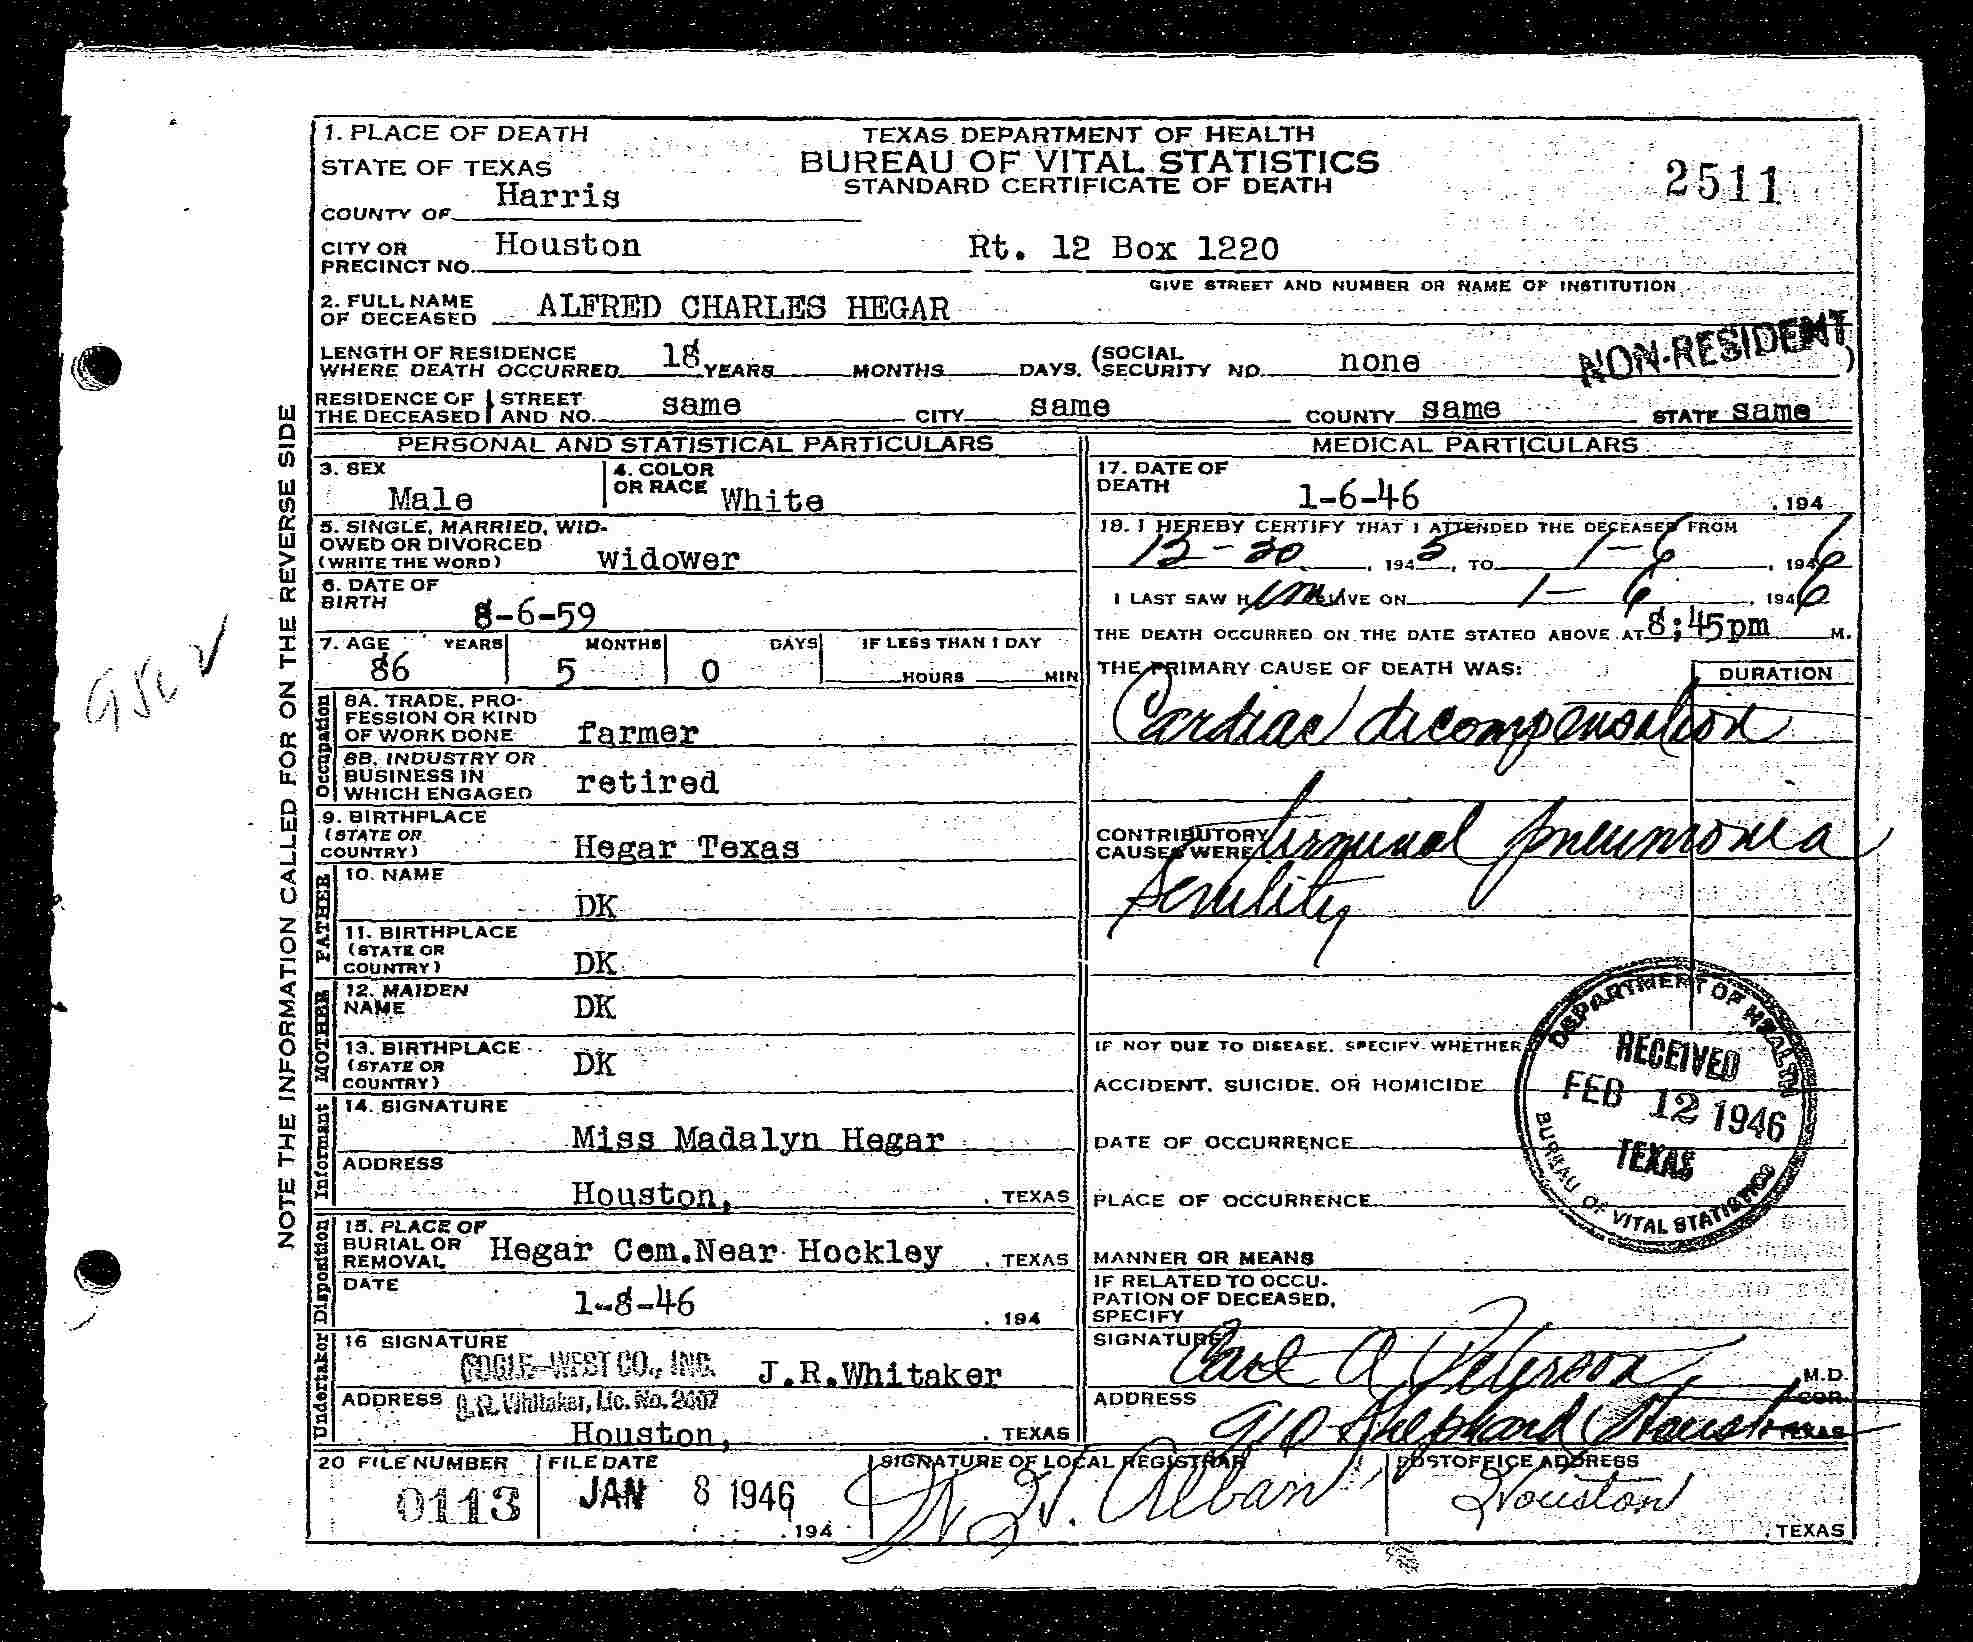 1. PLACE OF DEATH
STATE OF TEXAS
COUNTY OF Harris
TEXAS DEPARTMENT OF HEALTH
BUREAU OF VITAL STATISTICS
STANDARD CERTIFICATE OF DEATH
2511
CITY OR PRECINCT NO. Houston Rt. 12 Box 1220
GIVE STREET AND NUMBER OR NAME OF INSTITUTION
2. FULL NAME OF DECEASED ALFRED CHARLES HEGAR
NON-RESIDENT
LENGTH OF RESIDENCE WHERE DEATH OCCURRED 18 YEARS MONTHS DAYS. (SOCIAL SECURITY NO. none )
RESIDENCE OF THE DECEASED STREET AND NO. same CITY same COUNTY same STATE same
NOTE THE INFORMATION CALLED FOR ON THE REVERSE SIDE
PERSONAL AND STATISTICAL PARTICULARS
3. SEX Male
4. COLOR OR RACE White
5. SINGLE, MARRIED, WIDOWED OR DIVORCED (WRITE THE WORD) widower
6. DATE OF BIRTH 8-6-59
7. AGE YEARS MONTHS DAYS IF LESS THAN 1 DAY
86 5 0 HOURS MIN
Occupation
8A. TRADE, PROFESSION OR KIND OF WORK DONE farmer
8B. INDUSTRY OR BUSINESS IN WHICH ENGAGED retired
9. BIRTHPLACE (STATE OR COUNTRY) Hegar Texas
FATHER
10. NAME DK
11. BIRTHPLACE (STATE OR COUNTRY) DK
MOTHER
12. MAIDEN NAME DK
13. BIRTHPLACE (STATE OR COUNTRY) DK
Informant
14. SIGNATURE Miss Madalyn Hegar
ADDRESS Houston, , TEXAS
Disposition
15. PLACE OF BURIAL OR REMOVAL Hegar Cem.Near Hockley , TEXAS
DATE 1-8-46 , 194
Undertaker
16 SIGNATURE FOGLE-WEST CO., INC. J.R.Whitaker
ADDRESS J.R. Whitaker, Lic. No. 2407
Houston, , TEXAS
MEDICAL PARTICULARS
17. DATE OF DEATH 1-6-46 , 194
18. I HEREBY CERTIFY THAT I ATTENDED THE DECEASED FROM
12-20 , 1945, TO 1-6 , 1946
I LAST SAW H im ALIVE ON 1-6 , 1946
THE DEATH OCCURRED ON THE DATE STATED ABOVE AT 8;45pm M.
THE PRIMARY CAUSE OF DEATH WAS: DURATION
Cardiac decompensation
CONTRIBUTORY CAUSES WERE terminal pneumonia
Senility
IF NOT DUE TO DISEASE, SPECIFY WHETHER
ACCIDENT, SUICIDE, OR HOMICIDE
DATE OF OCCURRENCE
PLACE OF OCCURRENCE
MANNER OR MEANS
IF RELATED TO OCCUPATION OF DECEASED, SPECIFY
DEPARTMENT OF HEALTH
RECEIVED
FEB 12 1946
TEXAS
BUREAU OF VITAL STATISTICS
SIGNATURE Carl A Peterson M.D.
COR.
ADDRESS 910 Shephard Houston TEXAS
20 FILE NUMBER 0113
FILE DATE JAN 8 1946 , 194
SIGNATURE OF LOCAL REGISTRAR Alban
POSTOFFICE ADDRESS Houston , TEXAS